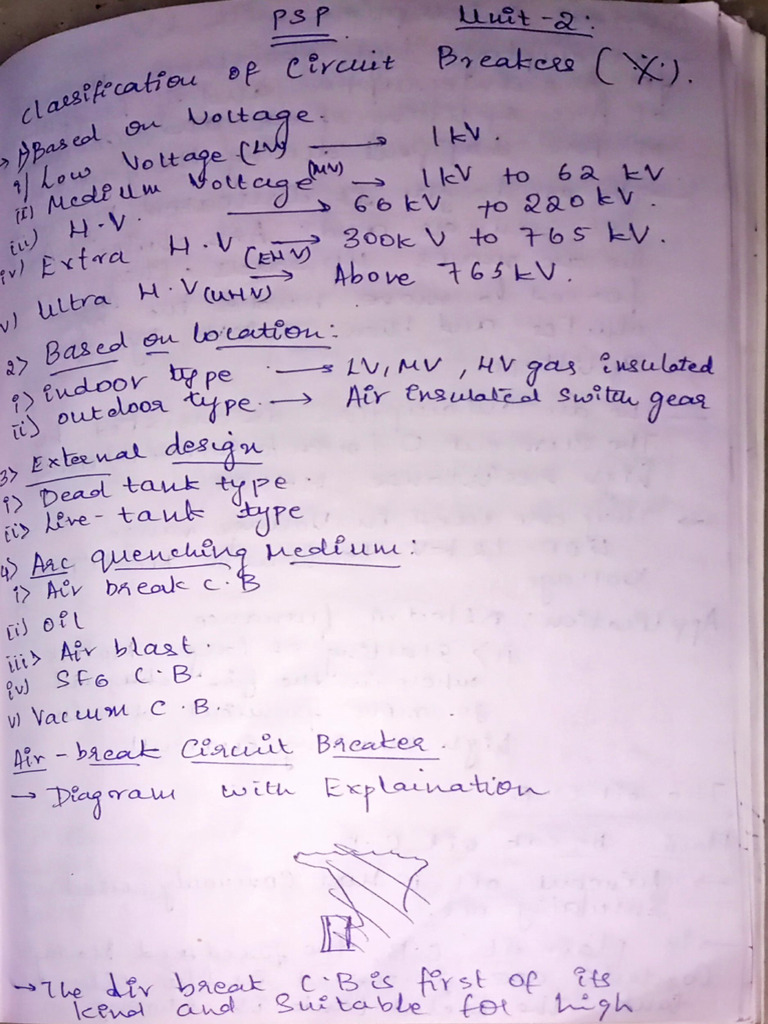 PSP Unit-2:
Classification of Circuit Breakers (X).
→ 1) Based on Voltage.
i) Low Voltage (LV) → 1kV.
ii) Medium Voltage (MV) → 1kV to 62 kV
iii) H.V. → 66 kV to 220 kV.
iv) Extra H.V (EHV) → 300kV to 765 kV.
v) Ultra H.V (UHV) → Above 765kV.
2) Based on location:
i) indoor type → LV, MV, HV gas insulated
ii) outdoor type. → Air insulated switch gear
3) External design
i) Dead tank type
ii) Live-tank type
4) Arc quenching Medium:
i) Air break C.B
ii) oil
iii) Air blast.
iv) SF6 C.B.
v) Vacuum C.B.
Air-break Circuit Breaker.
→ Diagram with Explaination
→ The air break C.B is first of its
kind and Suitable for high